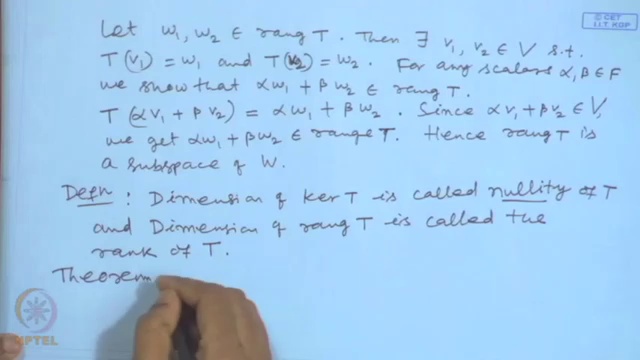 © CET
I.I.T. KGP
Let w₁, w₂ ∈ rang T. Then ∃ v₁, v₂ ∈ V s.t.
T(v₁) = w₁ and T(v₂) = w₂. For any scalars α, β ∈ F
we show that αw₁ + βw₂ ∈ rang T.
T(αv₁ + βv₂) = αw₁ + βw₂. Since αv₁ + βv₂ ∈ V,
we get αw₁ + βw₂ ∈ range T. Hence rang T is
a subspace of W.
Defn : Dimension of ker T is called nullity of T
and Dimension of rang T is called the
rank of T.
Theorem
NPTEL